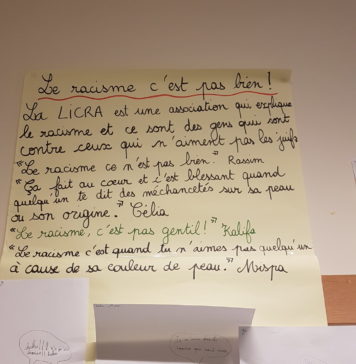 Le racisme c'est pas bien !
La LiCRA est une association qui explique
le racisme et ce sont des gens qui sont
contre ceux qui n'aiment pas les juifs
"Le racisme ce n'est pas bien." Rassim
"Ça fait au cœur et c'est blessant quand
quelqu'un te dit des méchancetés sur sa peau
ou son origine." Célia
"Le racisme, c'est pas gentil!" Kalifa
"Le racisme c'est quand tu n'aimes pas quelqu'un
à cause de sa couleur de peau."